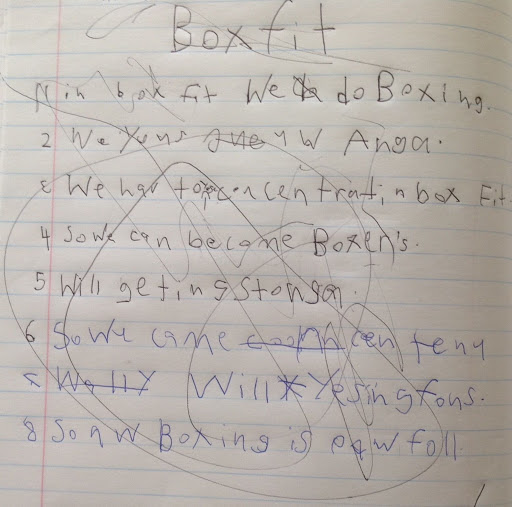 Boxfit
1 in box fit We do Boxing.
2 We Yous 4W Anga.
3 We har to concentrat in box Fit
4 So We can become Boxen's.
5 Will geting Stongan.
6 So We came cen feny
Will Yesing fons.
8 So aw Boxing is eqw foll